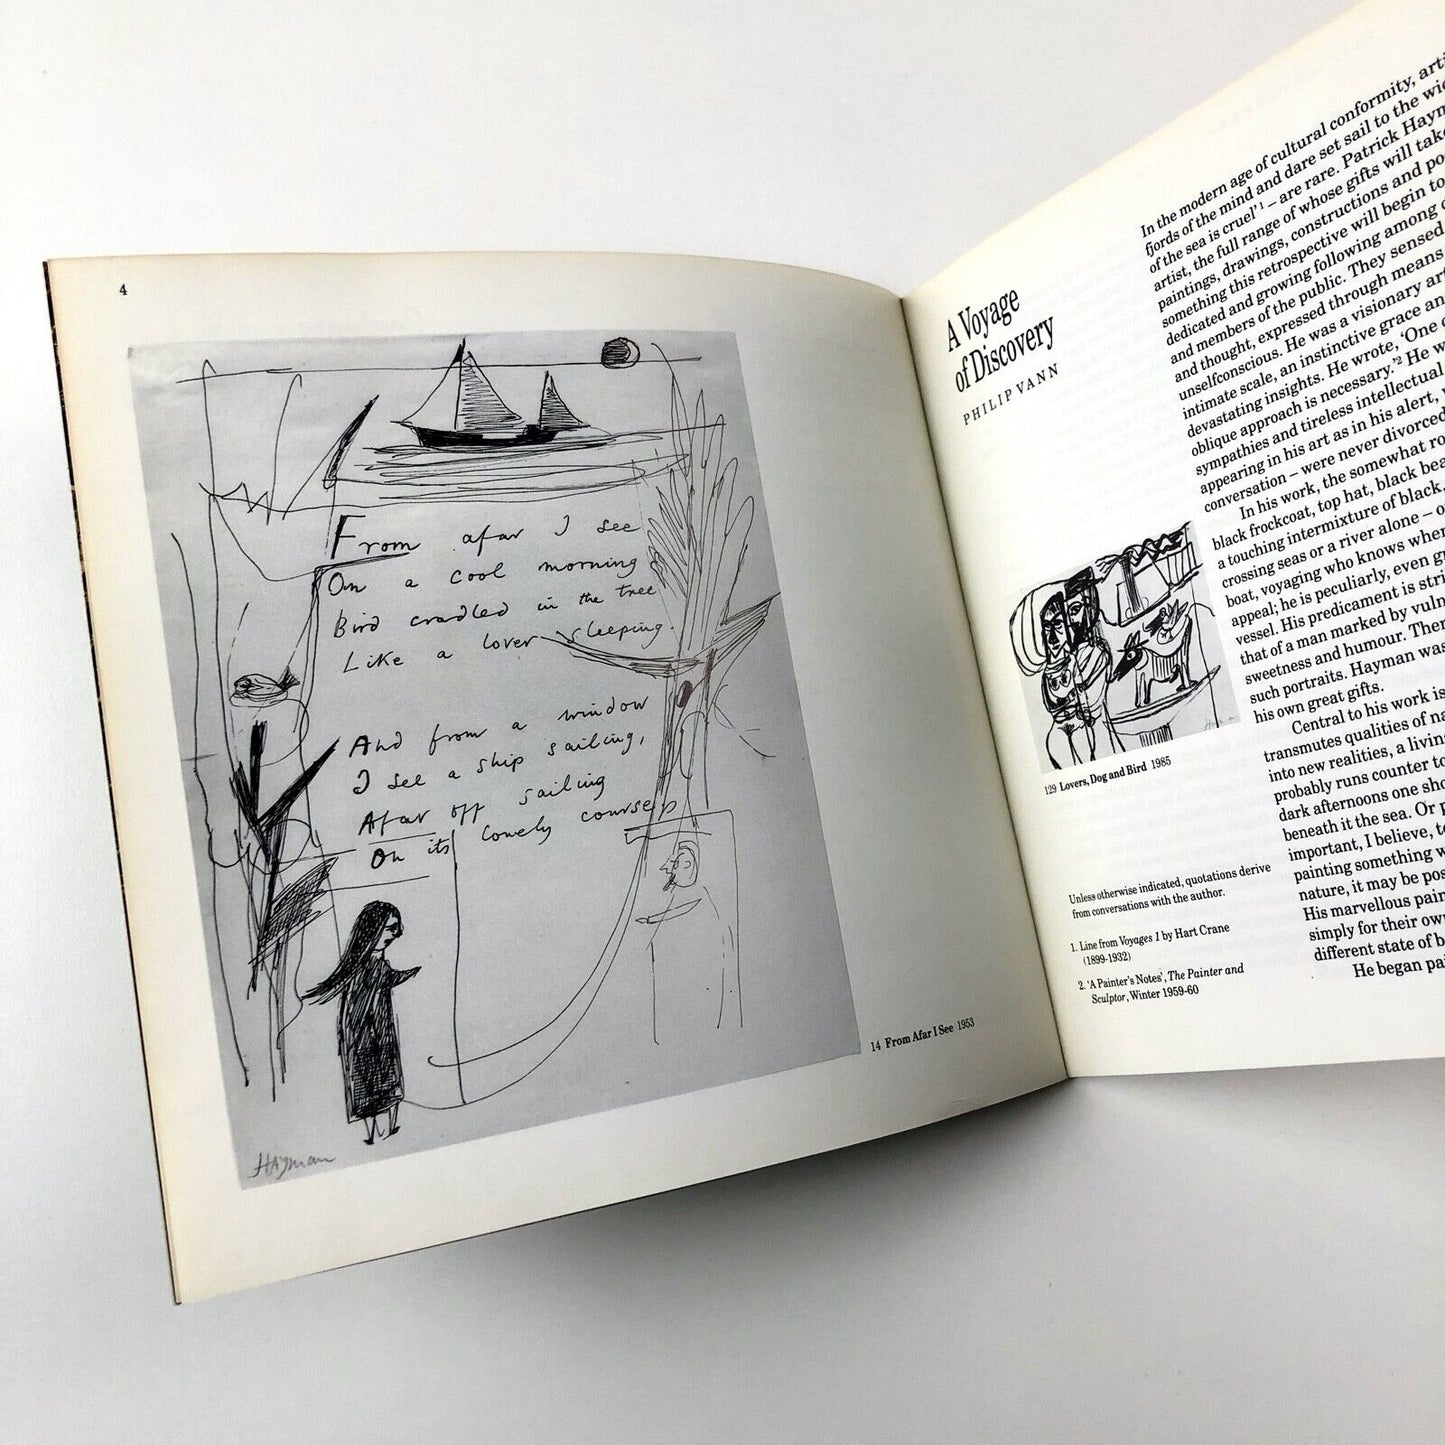 4
From afar I see
On a cool morning
Bird cradled in the tree
Like a lover sleeping.
And from a window
I see a ship sailing,
Afar off sailing
On its lonely course
HAyman
14 From Afar I See 1953
A Voyage
of Discovery
PHILIP VANN
129 Lovers, Dog and Bird 1985
Unless otherwise indicated, quotations derive
from conversations with the author.
1. Line from Voyages 1 by Hart Crane
(1899-1932)
2. ‘A Painter's Notes’, The Painter and
Sculptor, Winter 1959-60
In the modern age of cultural conformity,
fjords of the mind and dare set sail to the
of the sea is cruel’1 – are rare. Patrick
artist, the full range of whose gifts will
paintings, drawings, constructions and
something this retrospective will begin to
dedicated and growing following among
and members of the public. They sensed
and thought, expressed through means
unselfconscious. He was a visionary
intimate scale, an instinctive grace
devastating insights. He wrote, ‘One
oblique approach is necessary.’2 He
sympathies and tireless intellectual
appearing in his art as in his alert,
conversation – were never divorced
In his work, the somewhat
black frockcoat, top hat, black
a touching intermixture of black.
crossing seas or a river alone –
boat, voyaging who knows
appeal; he is peculiarly, even
vessel. His predicament is
that of a man marked by
sweetness and humour.
such portraits. Hayman was
his own great gifts.
Central to his work is
transmutes qualities of
into new realities, a
probably runs counter to
dark afternoons one
beneath it the sea. Or
important, I believe,
painting something
nature, it may be
His marvellous
simply for their
different state of
He began